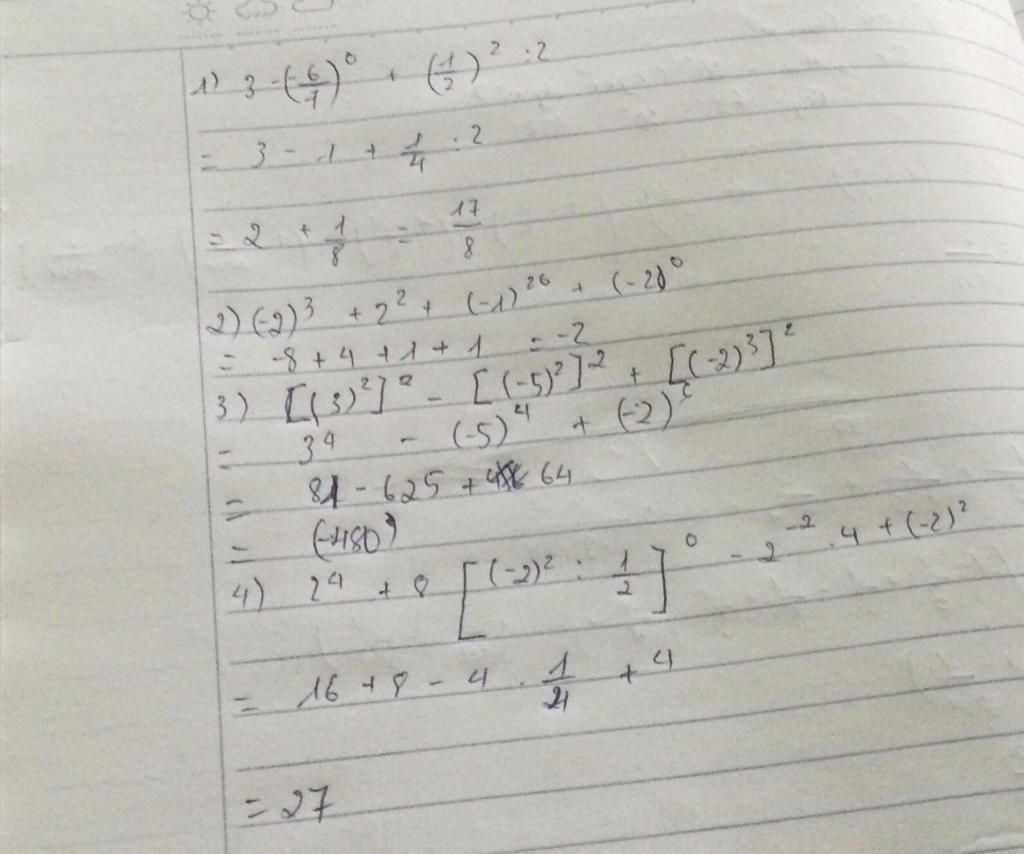 1) 3 - (-6/7)^0 + (1/2)^2 : 2
= 3 - 1 + 1/4 : 2
= 2 + 1/8 = 17/8
2) (-2)^3 + 2^2 + (-1)^20 + (-2)^0
= -8 + 4 + 1 + 1 = -2
3) [(3)^2]^2 - [(-5)^2]^2 + [(-2)^3]^2
= 3^4 - (-5)^4 + (-2)^6
= 81 - 625 + 64
= (-480)
4) 2^4 + 8 [(-2)^2 : 1/2]^0 - 2^-2 . 4 + (-2)^2
= 16 + 8 - 4 . 1/4 + 4
= 27